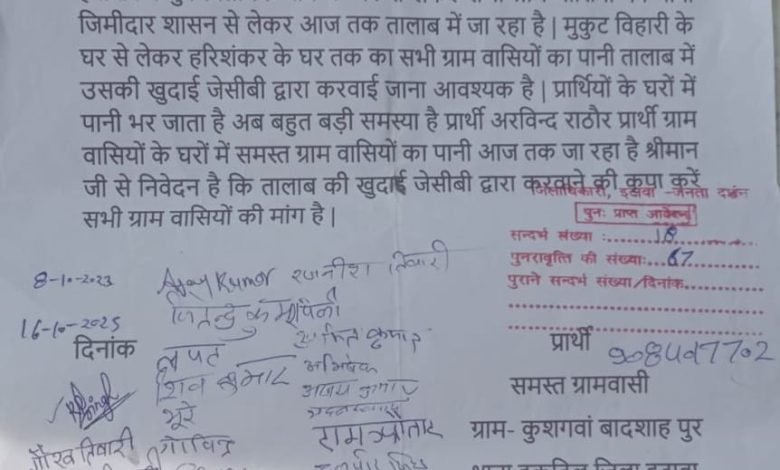 जिमीदार शासन से लेकर आज तक तालाब में जा रहा है | मुकुट विहारी के
घर से लेकर हरिशंकर के घर तक का सभी ग्राम वासियों का पानी तालाब में
उसकी खुदाई जेसीबी द्वारा करवाई जाना आवश्यक है | प्रार्थियों के घरों में
पानी भर जाता है अब बहुत बड़ी समस्या है प्रार्थी अरविन्द राठौर प्रार्थी ग्राम
वासियों के घरों में समस्त ग्राम वासियों का पानी आज तक जा रहा है श्रीमान
जी से निवेदन है कि तालाब की खुदाई जेसीबी द्वारा करवाने की कृपा करें
सभी ग्राम वासियों की मांग है |
जिलाधिकारी, इटावा -जनता दर्शन
पुनः प्राप्त आवेदन
सन्दर्भ संख्या :......18......
पुनरावृत्ति की संख्या:...67......
पुराने सन्दर्भ संख्या/दिनांक......
8-10-2023
Ajay Kumar रजनीश तिवारी
16-10-2025
दिनांक
शिव कुमार
अभिषेक
अजय कुमार
भूरे
गौरव तिवारी
गोविन्द
रामऔतार
प्रार्थी
समस्त ग्रामवासी
ग्राम- कुशगवां बादशाह पुर